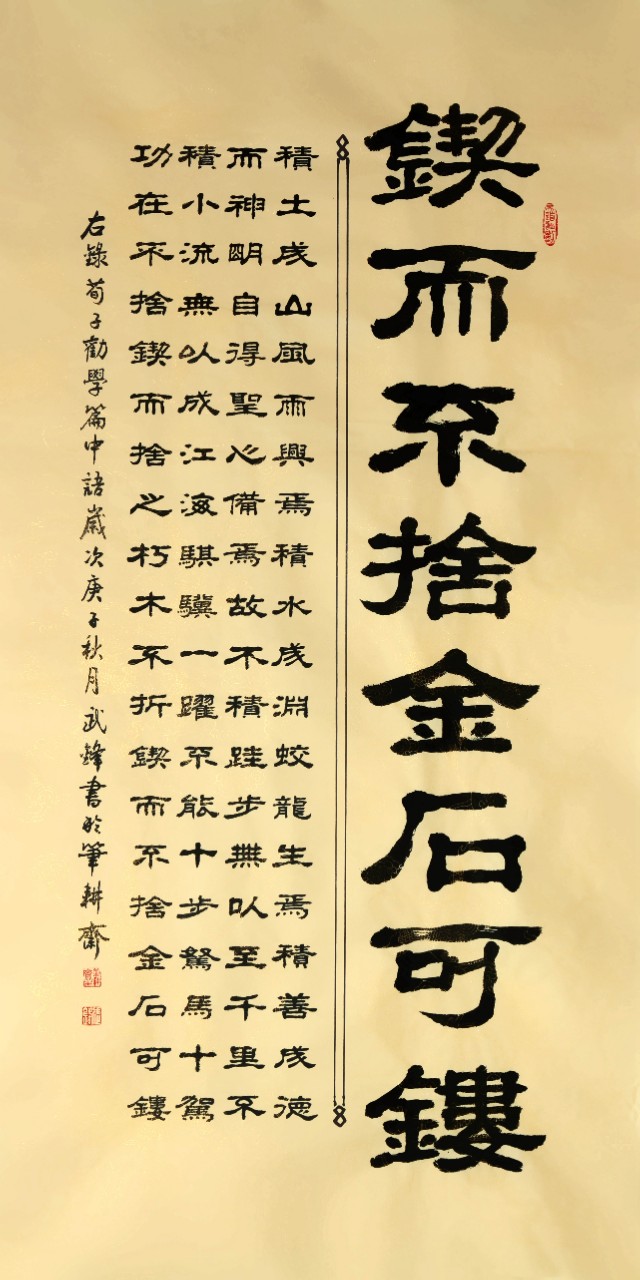 鍥而不捨金石可鏤
積土成山風雨興焉積水成淵蛟龍生焉積善成德
而神明自得聖心備焉故不積跬步無以至千里不
積小流無以成江海騏驥一躍不能十步駑馬十駕
功在不捨鍥而捨之朽木不折鍥而不捨金石可鏤
右錄荀子勸學篇中語歲次庚子秋月武鋒書於筆耕齋